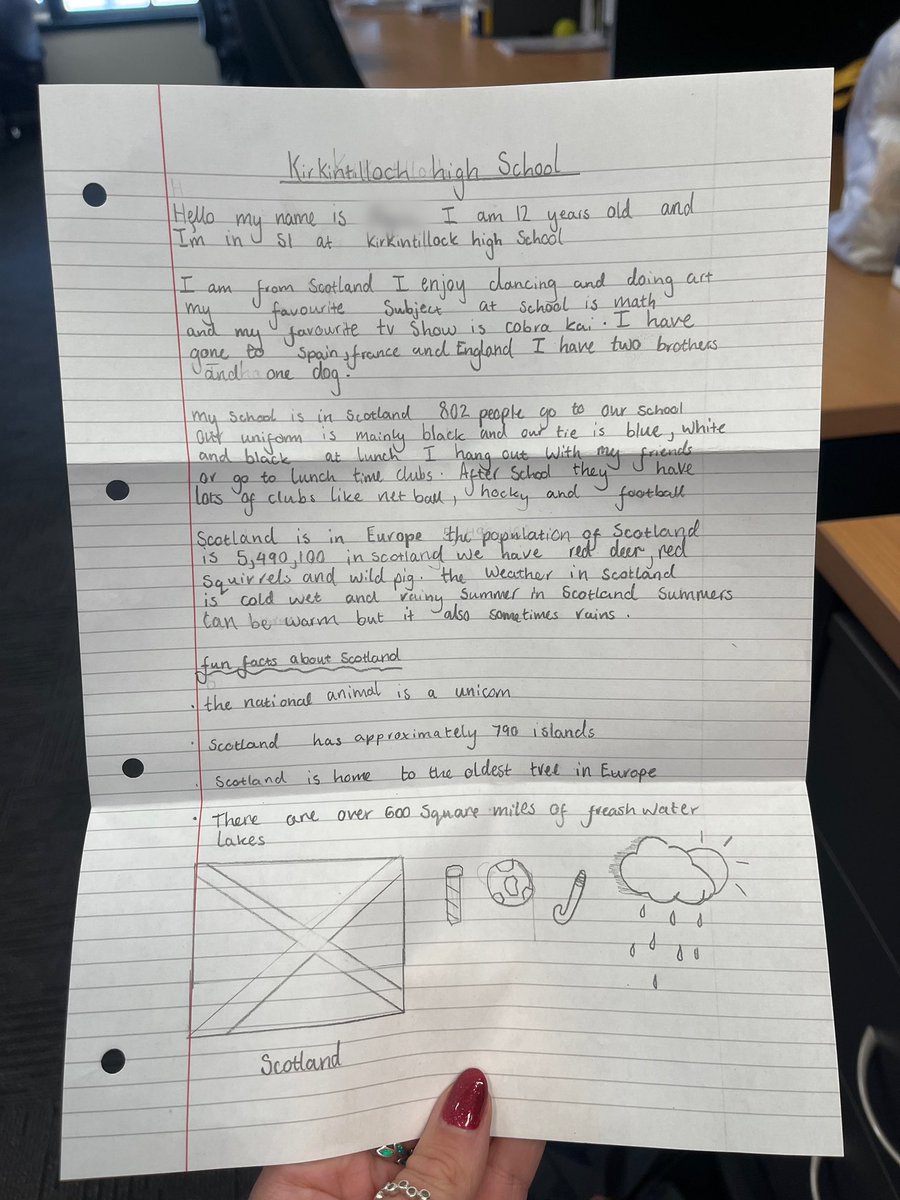 Kirkintilloch high School
Hello my name is I am 12 years old and
Im in S1 at Kirkintillock high School
I am from Scotland I enjoy dancing and doing art
my favourite Subject at school is math
and my favourite tv Show is cobra kai. I have
gone to Spain, france and England I have two brothers
and one dog.
my school is in Scotland 802 people go to our school
our uniform is mainly black and our tie is blue, white
and black at lunch I hang out with my friends
or go to Lunch time clubs. After School they have
lots of clubs like net ball, hocky and football
Scotland is in Europe the population of Scotland
is 5,490,100 in scotland we have red deer, red
squirrels and wild pig. the weather in Scotland
is cold wet and rainy summer in Scotland summers
can be warm but it also sometimes rains.
fun facts about Scotland
· the national animal is a unicorn
· Scotland has approximately 790 islands
· Scotland is home to the oldest tree in Europe
· There are over 600 Square miles of freash water
lakes
Scotland